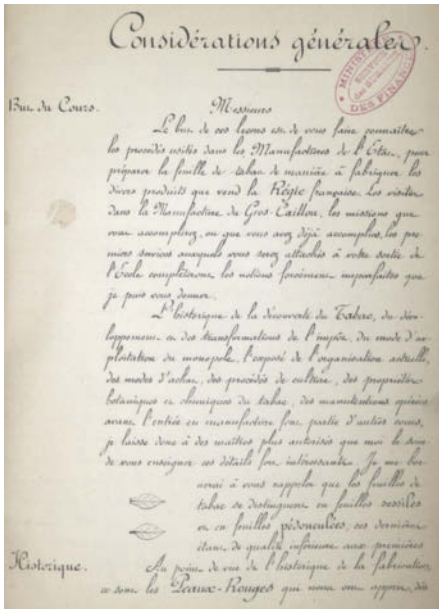 Considérations générales.
MINISTÈRE
DES FINANCES
But du Cours.
Messieurs
Le but de ces leçons est de vous faire connaître
les procédés usités dans les Manufactures de l'Etat, pour
préparer la feuille de tabac de manière à fabriquer les
divers produits que vend la Régie française. Les visites
dans la Manufacture du Gros-Caillou, les missions que
vous accomplirez, ou que vous avez déjà accomplies, les pre-
miers services auxquels vous serez attachés à votre sortie de
l'Ecole complèteront les notions forcément imparfaites que
je puis vous donner.
L'historique de la découverte du Tabac, du déve-
loppement et des transformations de l'impôt, du mode d'ex-
ploitation du monopole, l'exposé de l'organisation actuelle,
des modes d'achat, des procédés de culture, des propriétés
botaniques et chimiques du tabac, des manutentions opérées
avant l'entrée en manufacture font partie d'autres cours,
je laisse donc à des maîtres plus autorisés que moi le soin
de vous enseigner ces détails fort intéressants. Je me bor-
nerai à vous rappeler que les feuilles de
tabac se distinguent en feuilles sessiles
ou en feuilles pédonculées, ces dernières
étant de qualité inférieure aux premières
Historique.
Au point de vue de l'historique de la fabrication,
ce sont les Peaux-Rouges qui nous ont appris, dès